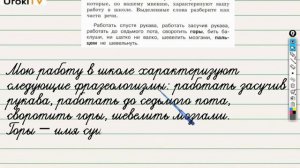 UROKI TV
которые, по вашему мнению, характеризуют вашу
работу в школе. Выделенные слова разберите как
части речи.
Работать спустя рукава, работать засучив рукава,
работать до седьмого пота, своротить горы, бить ба-
клуши, ни шатко ни валко, шевелить мозгами, паль-
цем не шевельнуть.
Мою работу в школе характеризуют
следующие фразеологизмы: работать засучив
рукава, работать до седьмого пота,
своротить горы, шевелить мозгами.
Горы – имя сущ